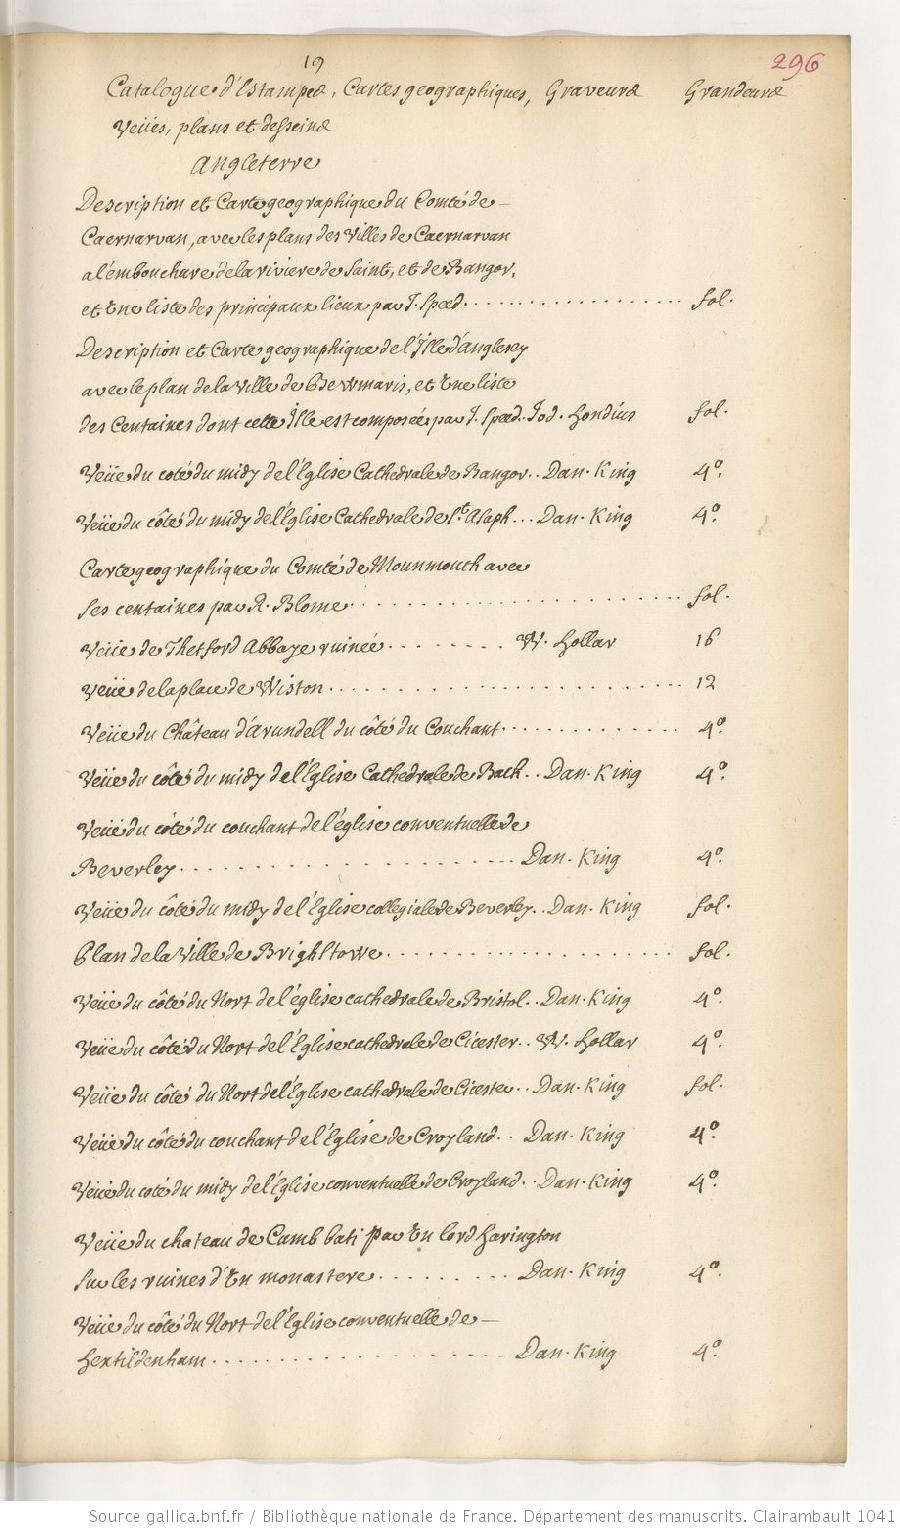 19
296
Catalogue d'Estampes, Cartes geographiques, Graveurs Grandeurs
Veües, plans et desseins
Angleterre
Description et Carte geographique du Comté de –
Caernarvan, avec les plans des Villes de Caernarvan
a l'embouchure de la riviere de Saint, et de Bangor,
et Une liste des principaux lieux par J. Speed. fol.
Description et Carte geographique de l'Jlle d'anglesey
avec le plan de la Ville de Bewmaris, et Une liste
des Centaines dont cette Jlle est composée par J. Speed. Jod. Hondius fol.
Veüe du coté du midy de l'Eglise Cathedrale de Bangor.. Dan. King 4º.
Veüe du côté du midy del'Église Cathedrale de St. Asaph... Dan. King 4º.
Carte geographique du Comté de Mounmouth avec
ses centaines par R. Blome. fol.
Veüe de Thetford Abbaye ruinée. W. Hollar 16
Veüe de la place de Wiston. 12
Veüe du Château d'Arundell du côté du Couchant. 4º.
Veüe du côté du midy de l'Eglise Cathedrale de Bath.. Dan. King 4º.
Veüe du côté du couchant de l'église conventuelle de
Beverley. Dan. King 4º.
Veüe du côté du midy de l'Eglise collegiale de Beverley.. Dan. King fol.
Plan de la Ville de Brighstowe. fol.
Veüe du côté du Nort de l'église cathedrale de Bristol.. Dan. King 4º.
Veüe du côté du Nort de l'Eglise cathedrale de Cicester.. W. Hollar 4º.
Veüe du côté du Nort del'Eglise cathedrale de Cicester.. Dan. King fol.
Veüe du côté du couchant de l'Eglise de Croyland.. Dan. King 4º.
Veüe du coté du midy de l'Église conventuelle de Croyland.. Dan. King 4º.
Veüe du chateau de Cumb bati par Un lord Harington
sur les ruines d'Un monastere. Dan. King 4º.
Veüe du côté du Nort del'Église conventuelle de –
Hextildenham. Dan. King 4º.
Source gallica.bnf.fr / Bibliothèque nationale de France. Département des manuscrits. Clairambault 1041